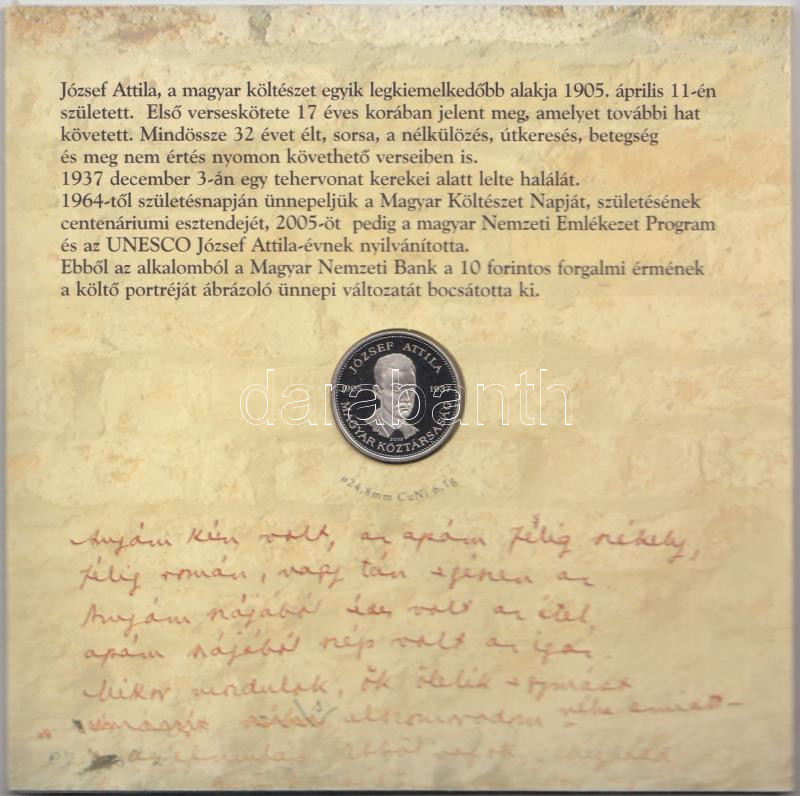 József Attila, a magyar költészet egyik legkiemelkedőbb alakja 1905. április 11-én
született. Első verseskötete 17 éves korában jelent meg, amelyet további hat
követett. Mindössze 32 évet élt, sorsa, a nélkülözés, útkeresés, betegség
és meg nem értés nyomon követhető verseiben is.
1937 december 3-án egy tehervonat kerekei alatt lelte halálát.
1964-től születésnapján ünnepeljük a Magyar Költészet Napját, születésének
centenáriumi esztendejét, 2005-öt pedig a magyar Nemzeti Emlékezet Program
és az UNESCO József Attila-évnek nyilvánította.
Ebből az alkalomból a Magyar Nemzeti Bank a 10 forintos forgalmi érmének
a költő portréját ábrázoló ünnepi változatát bocsátotta ki.
JÓZSEF ATTILA
1905 1937
2005
MAGYAR KÖZTÁRSASÁG
darabanth
ø24,8mm CuNi 6,1g
Anyám kún volt, az apám félig székely,
félig román, vagy tán egészen az.
Anyám szájából édes volt az étel,
apám szájából szép volt az igaz.
Mikor mozdulok, ők ölelik egymást
elszomorodom néha emiatt
az elmulás. Ebből vagyok.